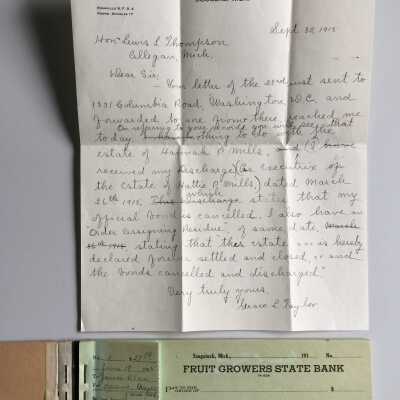 Sept 30, 1918
Hon. Lewis L Thompson
Allegan, Mich.
Dear Sir:
- Your letter of the 23rd inst sent to
1831 Columbia Road, Washington D.C. and
forwarded to me from there reached me
On referring to your records you will see that
today. nothing to do with the
estate of Hannah P. Mills, and (I have
received my discharge (as executrix of
the Estate of Hattie P Mills) dated March
26th 1918, This which discharge states that my
official bond is cancelled. I also have an
"Order Assigning Residue" of same date, March
26th 1918 stating that "this estate ... is hereby
declared forever settled and closed, ... and
the bonds cancelled and discharged."
Very truly yours,
Grace L Taylor
Saugatuck, Mich., 191 No.
FRUIT GROWERS STATE BANK
$